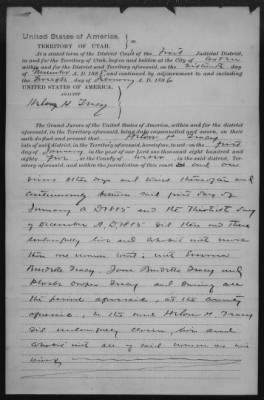 United States of America.
TERRITORY OF UTAH.
At a stated term of the District Court of the First Judicial District,
in and for the Territory of Utah, begun and holden at the City of Ogden
within and for the District and Territory aforesaid, on the day
of A. D. 188 and continued by adjournment to and including
the day of A. D. 1886
UNITED STATES OF AMERICA,
AGAINST
Helon H. Tracy
The Grand Jurors of the United States of America, within and for the district
aforesaid, in the Territory aforesaid, being duly empanneled and sworn, on their
oath do find and present that Helon H. Tracy
late of said district, in the Territory aforesaid, heretofore, to-wit: on the first
day of January in the year of our Lord one thousand eight hundred and
eighty five, at the County of Weber in the said district, Territory
aforesaid, and within the jurisdiction of this court and on
divers other days and times thereafter and
continuously between said first day of
January A. D. 1885 and the Thirtieth day
of December A. D. 1885 did then and there
unlawfully live and cohabit with more
than one woman towit: with Emma
Tracy, Jane Tracy and
Tracy and during all
the period aforesaid, at the County
aforesaid, he the said Helon H. Tracy
did unlawfully claim, live and
cohabit with all of said women as his
wives